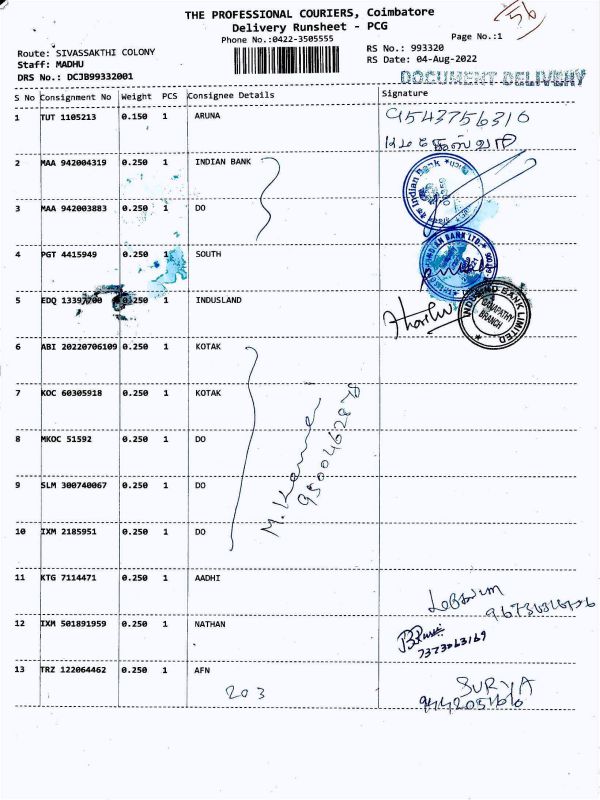 THE PROFESSIONAL COURIERS, Coimbatore
Delivery Runsheet - PCG
56
Phone No.:0422-3505555
Page No.:1
Route: SIVASSAKTHI COLONY
RS No.: 993320
Staff: MADHU
RS Date: 04-Aug-2022
DRS No.: DCJB99332001
DOCUMENT DELIVERY
S No Consignment No Weight PCS Consignee Details Signature
1 TUT 1105213 0.150 1 ARUNA 9543756310
2 MAA 942004319 0.250 1 INDIAN BANK
Indian Bank
3 MAA 942003883 0.250 1 DO
4 PGT 4415949 0.250 1 SOUTH
BANK LTD.
5 EDQ 13397700 0.250 1 INDUSLAND
INDUSIND BANK LIMITED
GANAPATHY
BRANCH
6 ABI 20220706109 0.250 1 KOTAK
7 KOC 60305918 0.250 1 KOTAK
8 MKOC 51592 0.250 1 DO
9 SLM 300740067 0.250 1 DO
10 IXM 2185951 0.250 1 DO
11 KTG 7114471 0.250 1 AADHI
12 IXM 501891959 0.250 1 NATHAN
7373063169
13 TRZ 122064462 0.250 1 AFN
203
SURYA